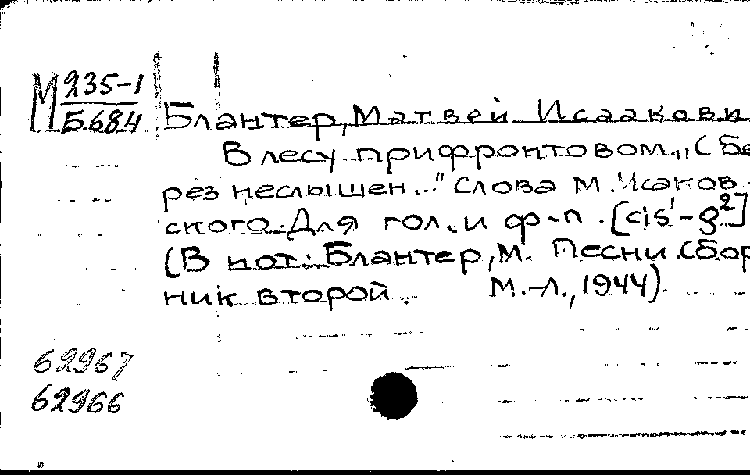 М 235-1
Б684
Блантер, Матвей Исаакови
В лесу прифронтовом. „(Бе
рез неслышен..." Слова М. Исаков
ского. Для гол. и ф-п. [cis¹-g²]
(В нот: Блантер, М. Песни. Сбор
ник второй. М.-Л., 1944)
62967
62966